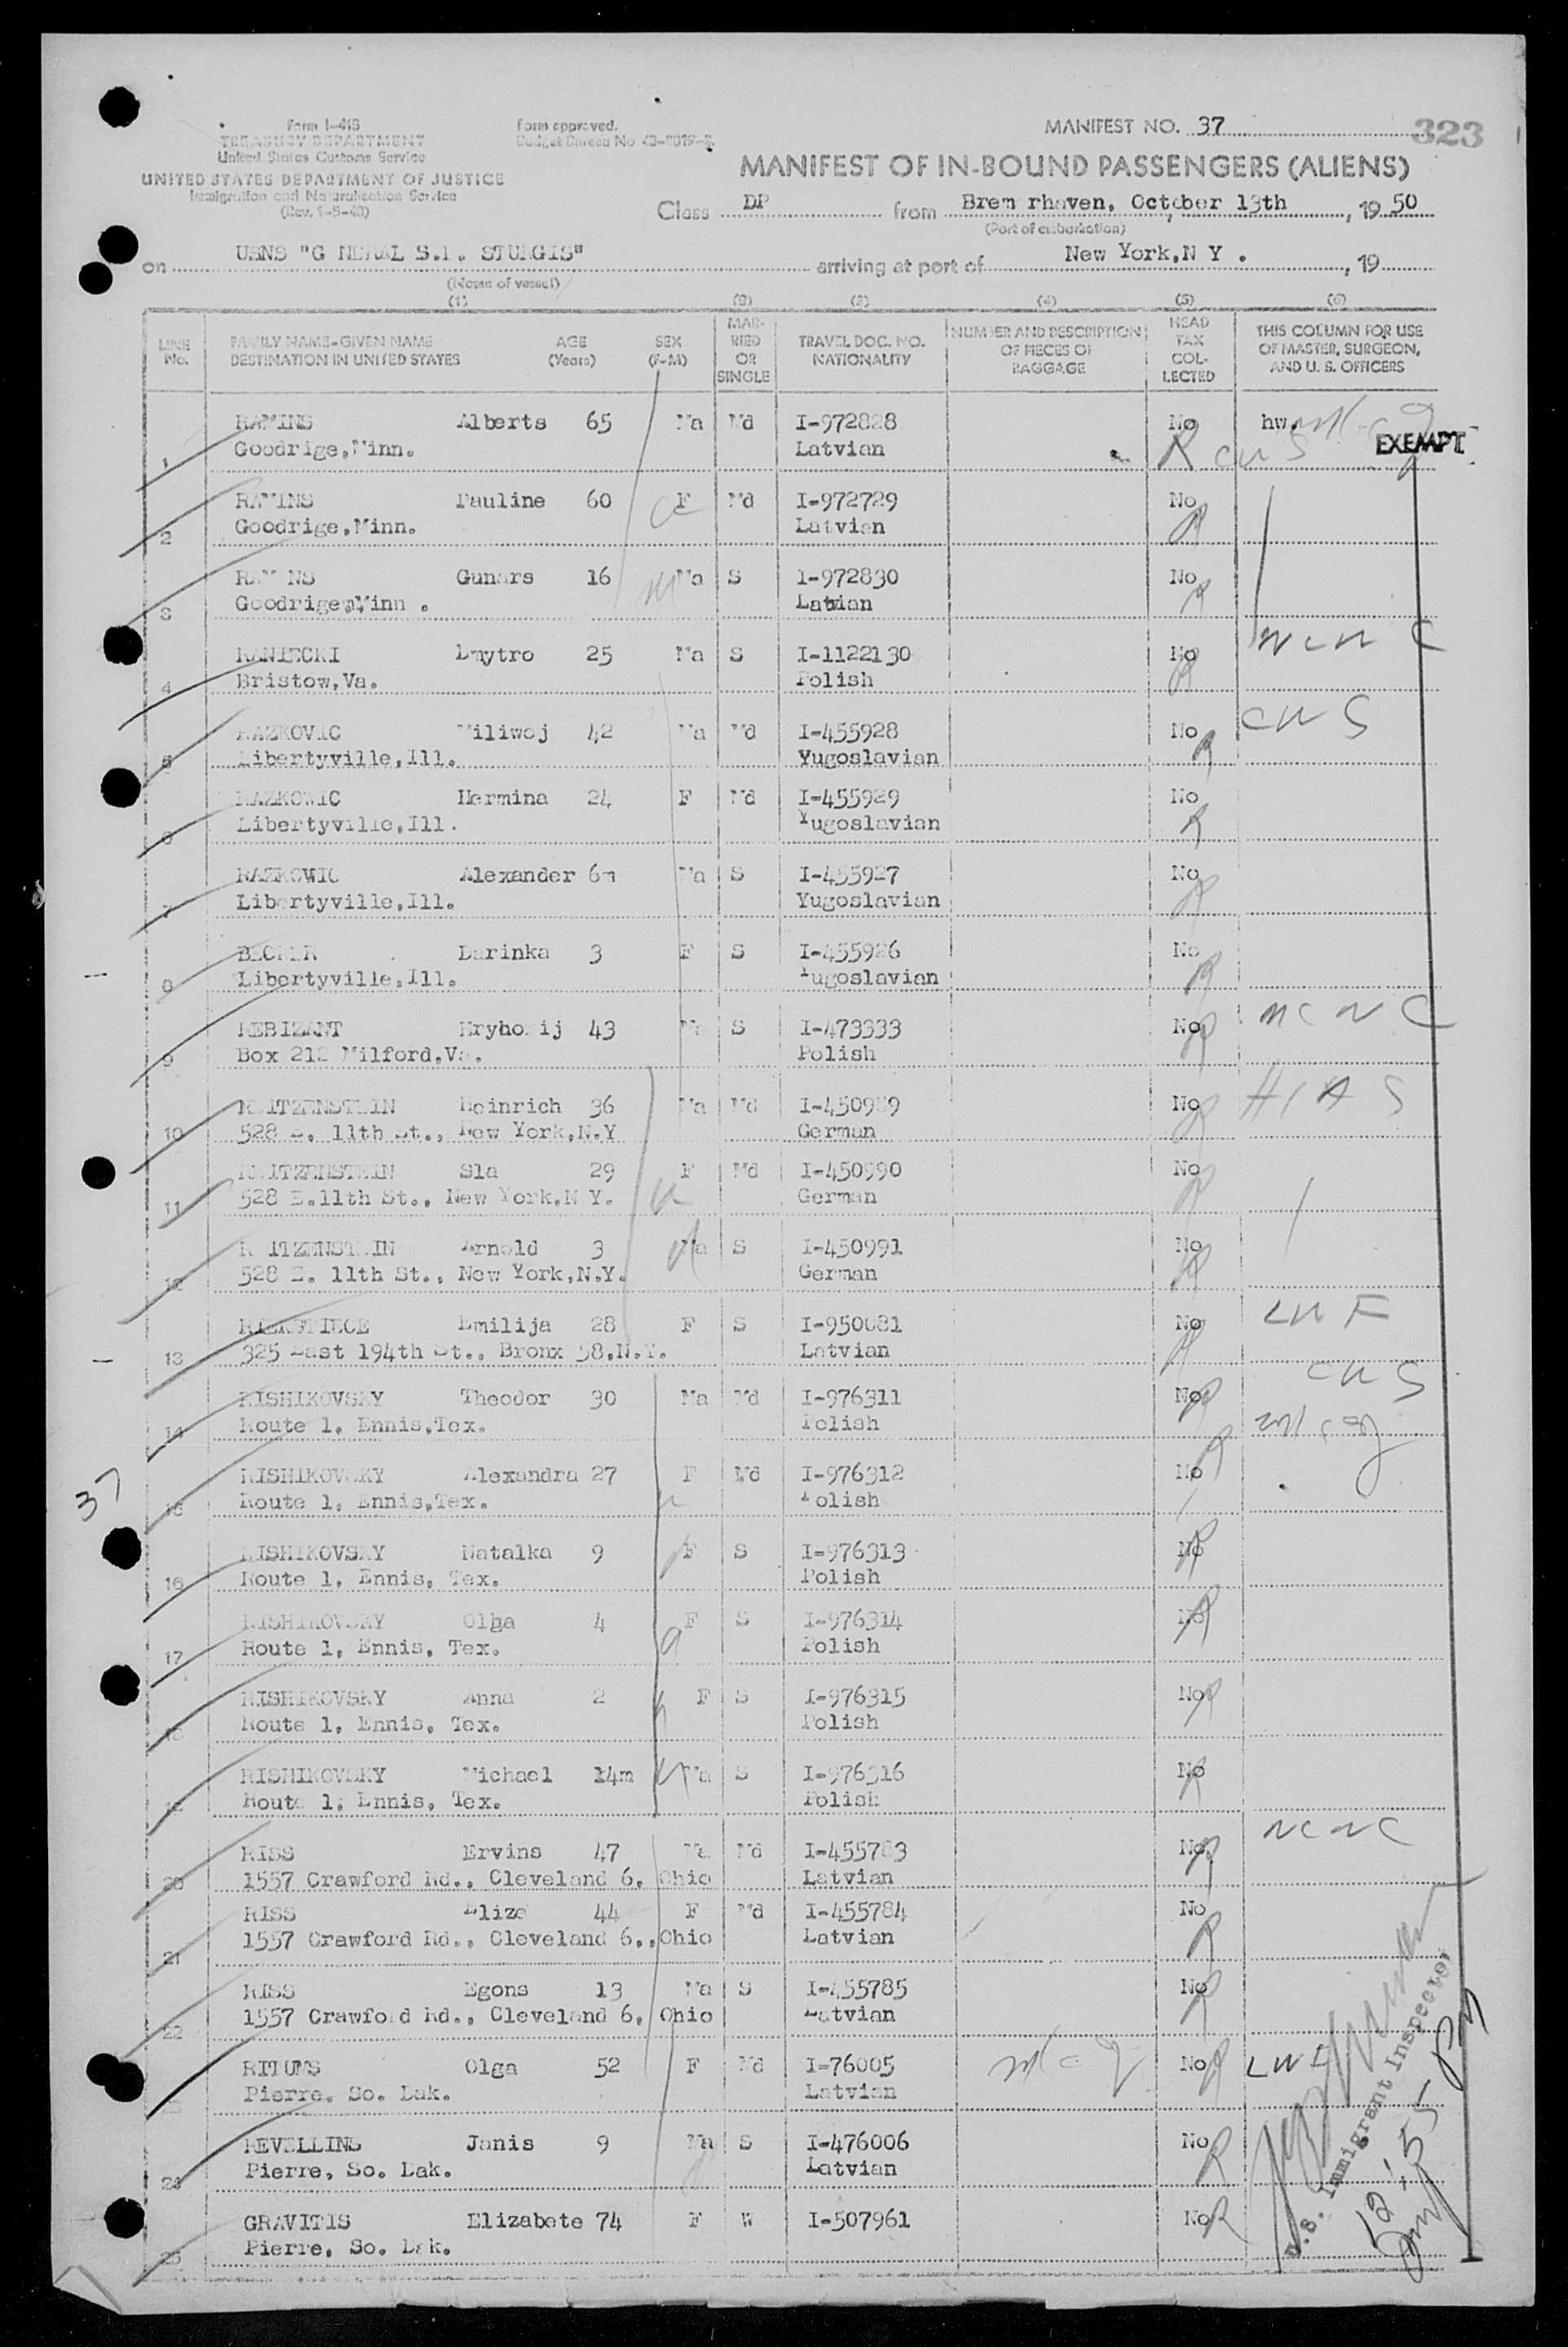 Form I-418
TREASURY DEPARTMENT
United States Customs Service
UNITED STATES DEPARTMENT OF JUSTICE
Immigration and Naturalization Service
Form approved.
MANIFEST NO. 37
323
MANIFEST OF IN-BOUND PASSENGERS (ALIENS)
Class DP from Brem rhaven, October 13th, 19 50
(Port of embarkation)
on USNS "G NERAL S.D. STURGIS" arriving at port of New York,N Y . , 19
(Name of vessel)
(1) (2) (3) (4) (5) (6)
LINE No. FAMILY NAME-GIVEN NAME DESTINATION IN UNITED STATES AGE (Years) SEX (F-M) MARRIED OR SINGLE TRAVEL DOC. NO. NATIONALITY NUMBER AND DESCRIPTION OF PIECES OF BAGGAGE HEAD TAX COLLECTED THIS COLUMN FOR USE OF MASTER, SURGEON, AND U. S. OFFICERS
1 RAMINS Alberts 65 Ma Md I-972828 No hw.
Goodrige,Minn. Latvian R CWS EXEMPT
2 RAMINS Pauline 60 F Md I-972729 No
Goodrige,Minn. Latvian R
3 RAMINS Gunars 16 Ma S I-972830 No
Goodrige,Minn . Latvian R
4 RANIECKI Dmytro 25 Ma S I-1122130 No NCWC
Bristow,Va. Polish R
5 RAZKOVIC Miliwoj 42 Ma Md I-455928 No CWS
Libertyville,Ill. Yugoslavian R
6 RAZKOWIC Hermina 24 F Md I-455929 No
Libertyville,Ill. Yugoslavian R
7 RAZKOWIC Alexander 6m Ma S I-455927 No
Libertyville,Ill. Yugoslavian R
8 BECKER Darinka 3 F S I-455926 No
Libertyville,Ill. Yugoslavian R
9 REBIZANT Hryhorij 43 Ma S I-473333 No NCWC
Box 212 Milford,Va. Polish R
10 REITZENSTEIN Heinrich 36 Ma Md I-450989 No HIAS
528 E. 11th St., New York,N.Y German R
11 REITZENSTEIN Sla 29 F Md I-450990 No
528 E.11th St., New York,N Y. German R
12 REITZENSTEIN Arnold 3 Ma S I-450991 No
528 E. 11th St., New York,N.Y. German R
13 Emilija 28 F S I-950681 No LWF
325 East 194th St., Bronx 58,N.Y. Latvian R
14 RISHIKOVSKY Theodor 30 Ma Md I-976311 No CWS
Route 1, Ennis,Tex. Polish R
15 RISHIKOVSKY Alexandra 27 F Md I-976312 No
Route 1, Ennis,Tex. Polish R
16 RISHIKOVSKY Natalka 9 F S I-976313 No
Route 1, Ennis, Tex. Polish R
17 RISHIKOVSKY Olga 4 F S I-976314 No
Route 1, Ennis, Tex. Polish R
18 RISHIKOVSKY Anna 2 F S I-976315 No
Route 1, Ennis, Tex. Polish R
19 RISHIKOVSKY Michael 14m Ma S I-976316 No
Route 1, Ennis, Tex. Polish R
20 RISS Ervins 47 Ma Md I-455783 No NCWC
1557 Crawford Rd., Cleveland 6, Ohio Latvian R
21 RISS Elize 44 F Md I-455784 No
1557 Crawford Rd., Cleveland 6,,Ohio Latvian R
22 RISS Egons 13 Ma S I-455785 No
1557 Crawford Rd., Cleveland 6, Ohio Latvian R
23 RITUMS Olga 52 F Md I-76005 No R LWF
Pierre, So. Dak. Latvian
24 REVELLINS Janis 9 Ma S I-476006 No R
Pierre, So. Dak. Latvian
25 GRAVITIS Elizabete 74 F W I-507961 No R
Pierre, So. Dak.
37
U.S. Immigrant Inspector
12:55 PM